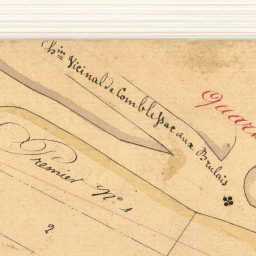 Ch.in Vicinal de Comblessac aux Brulais
Quar
Premier N.o 1
2